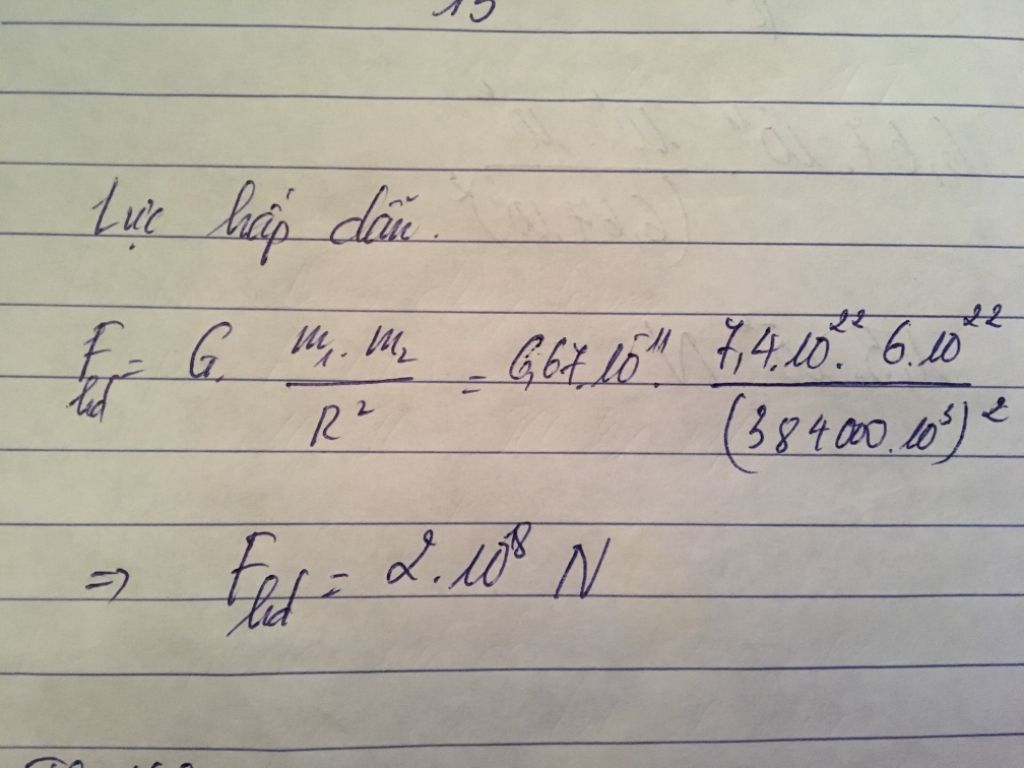 13
Lực hấp dẫn.
F_hd = G. m₁. m₂ / R² = 6,67.10⁻¹¹. 7,4.10²². 6.10²² / (384000.10³)²
=> F_hd = 2.10¹⁸ N